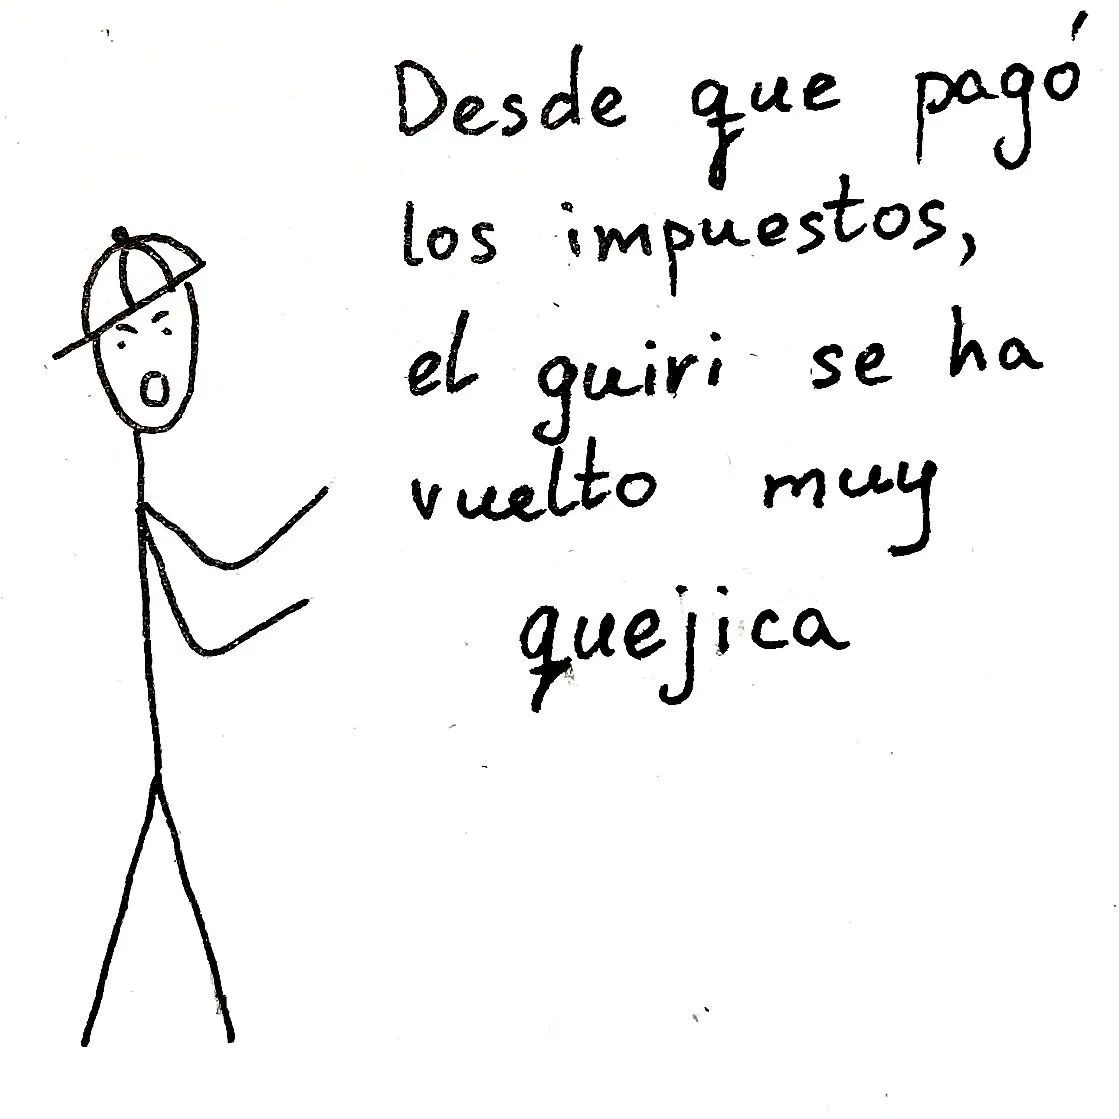 Desde que pagó
los impuestos,
el guiri se ha
vuelto muy
quejica